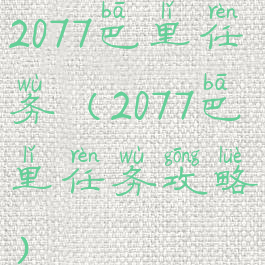 bā lǐ rèn
2077巴里任
wù bā
务（2077巴
lǐ rèn wù gōng lüè
里任务攻略
）